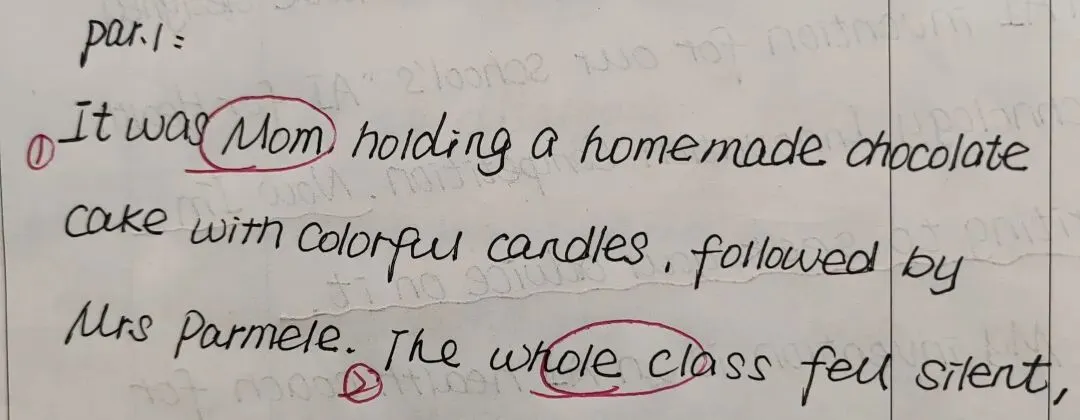 par.1:
① It was Mom holding a homemade chocolate
cake with colorful candles, followed by
Mrs Parmele. ② The whole class fell silent,